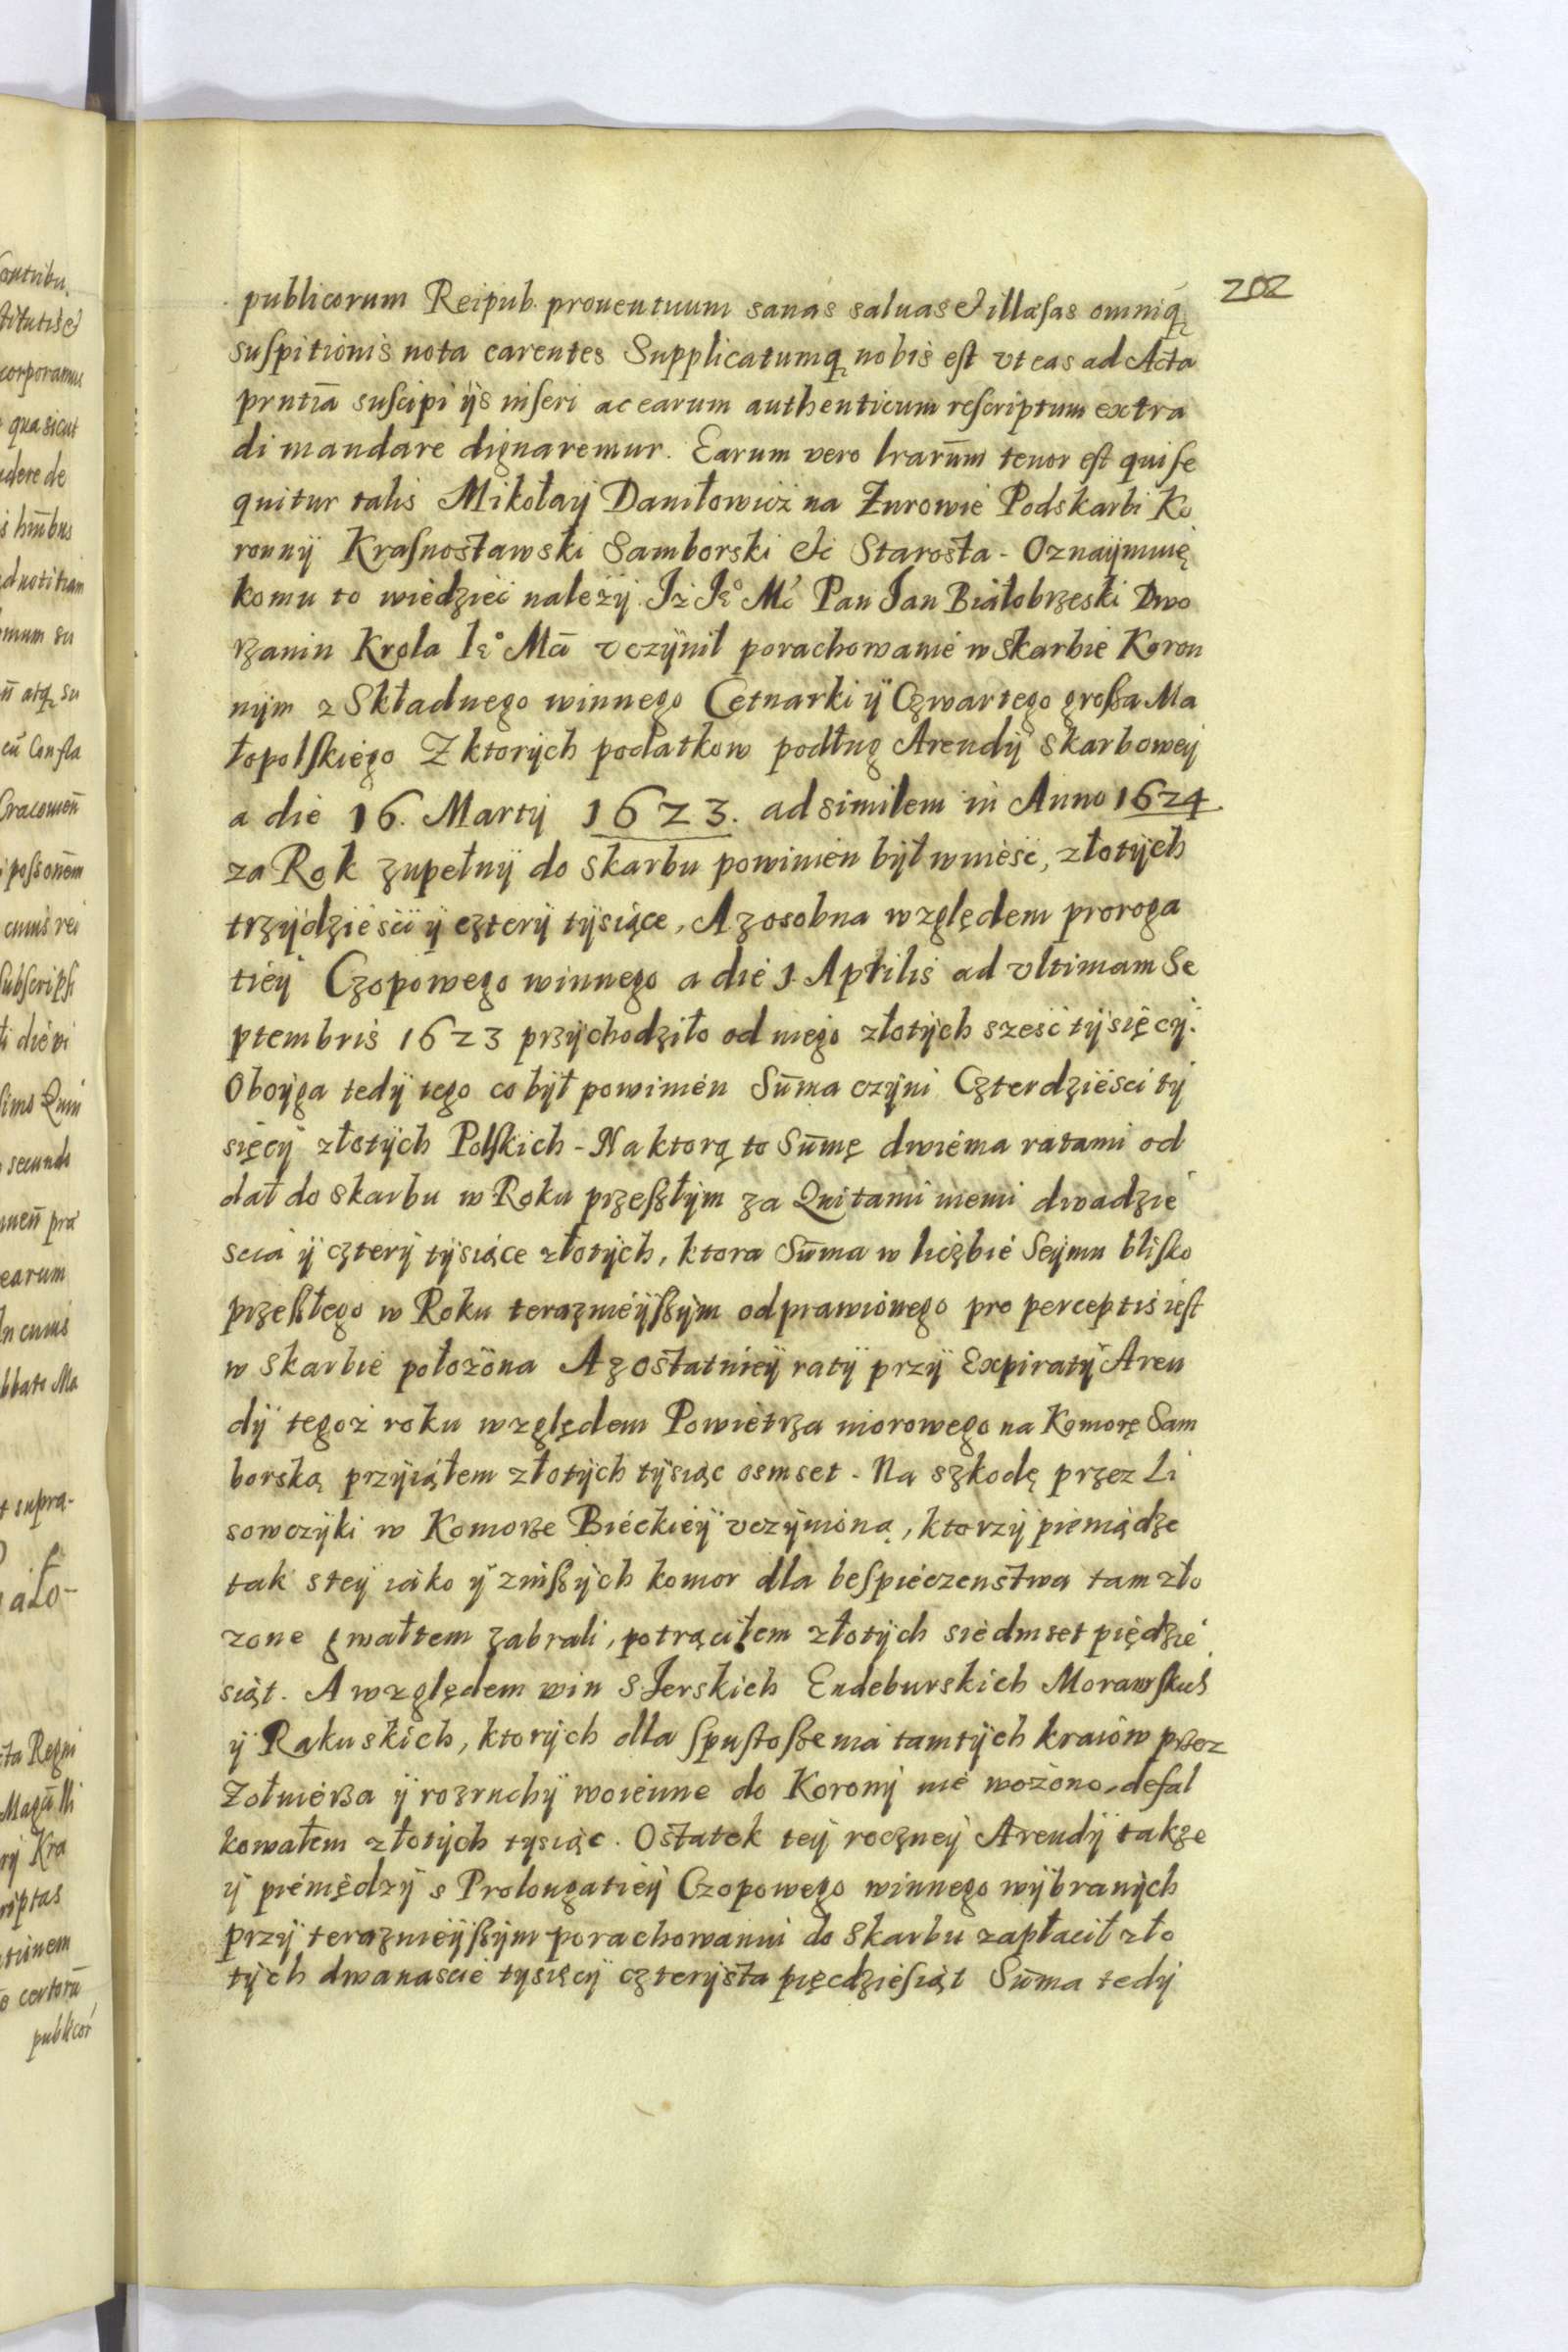 202
publicorum Reipub. prouentuum sanas saluas & illæsas omniq̃
suspitionis nota carentes Supplicatumq nobis est vt eas ad Acta
prntiã suscipi ijs inseri ac earum authenticum rescriptum extra
di mandare dignaremur. Earum vero lrarum̃ tenor est qui se
quitur talis Mikołaÿ Daniłowicz na Zurowie Podskarbi Ko
ronnÿ Krasnostawski Samborski &c Starosta - Oznaÿmuię
komu to wiedzieć należÿ. Iż Ie͛º Mć Pan Ian Białobrzeski Dwo
rzanin Krola Ie͛º Mći vczÿnił porachowanie w skarbie Koron
nÿm z Składnego winnego Cetnarki ÿ Czwartego großa Ma
łopolskiego Z ktorÿch podatkow podług Arendÿ skarboweÿ
a die 16. Martij 1623. ad similem in Anno 1624.
za Rok zupełnÿ do skarbu powinien bÿł wnieść, złotÿch
trzÿdzieści ÿ czterÿ tÿsiące, A zosobna względem proroga
tieÿ Czopowego winnego a die 1. Aprilis ad vltimam Se
ptembris 1623 przÿchodziło od niego złotÿch sześć tÿsięcÿ.
Oboÿga tedÿ tego co bÿł powinien Sum̃a czÿni Czterdzieści tÿ
sięcÿ złotÿch Polskich - Na ktorą to Sum̃ę dwiema ratami od
dał do skarbu w Roku przeszłÿm za Quitami memi dwadzie
scia ÿ czterÿ tÿsiące złotÿch, ktora Sum̃a w liczbie Seÿmu blisko
przeszłego w Roku teraznieÿszÿm odprawionego pro perceptis iest
w skarbie położona A z ostatnieÿ ratÿ przÿ Expiratÿ Aren
dÿ tegoż roku względem Powietrza morowego na Komorę Sam
borską przÿiąłem złotÿch tÿsiąc osmset - Na szkodę przez Li
sowczÿki w Komorze Bieckieÿ vczÿnioną, ktorzÿ pieniądze
tak s teÿ iako ÿ z inszÿch komor dla bespieczenstwa tam zło
zone gwałtem zabrali, potrąciłem złotÿch siedmset pięćdzie
siąt. A względem win S Ierskich Endeburskich Morawskich
ÿ Rakuskich, ktorÿch dla spustoszenia tamtÿch kraiow przez
Zołnierza ÿ rozruchÿ woienne do Koronÿ nie wożono, defal
kowałem złotÿch tysiąc. Ostatek teÿ roczneÿ Arendÿ takze
ÿ pieniędzÿ s Prolongatieÿ Czopowego winnego wÿbranÿch
przÿ teraznieÿszÿm porachowaniu do skarbu zapłacił zło
tÿch dwanascie tysięcÿ czterÿsta pięcdziesiąt Sum̃a tedÿ